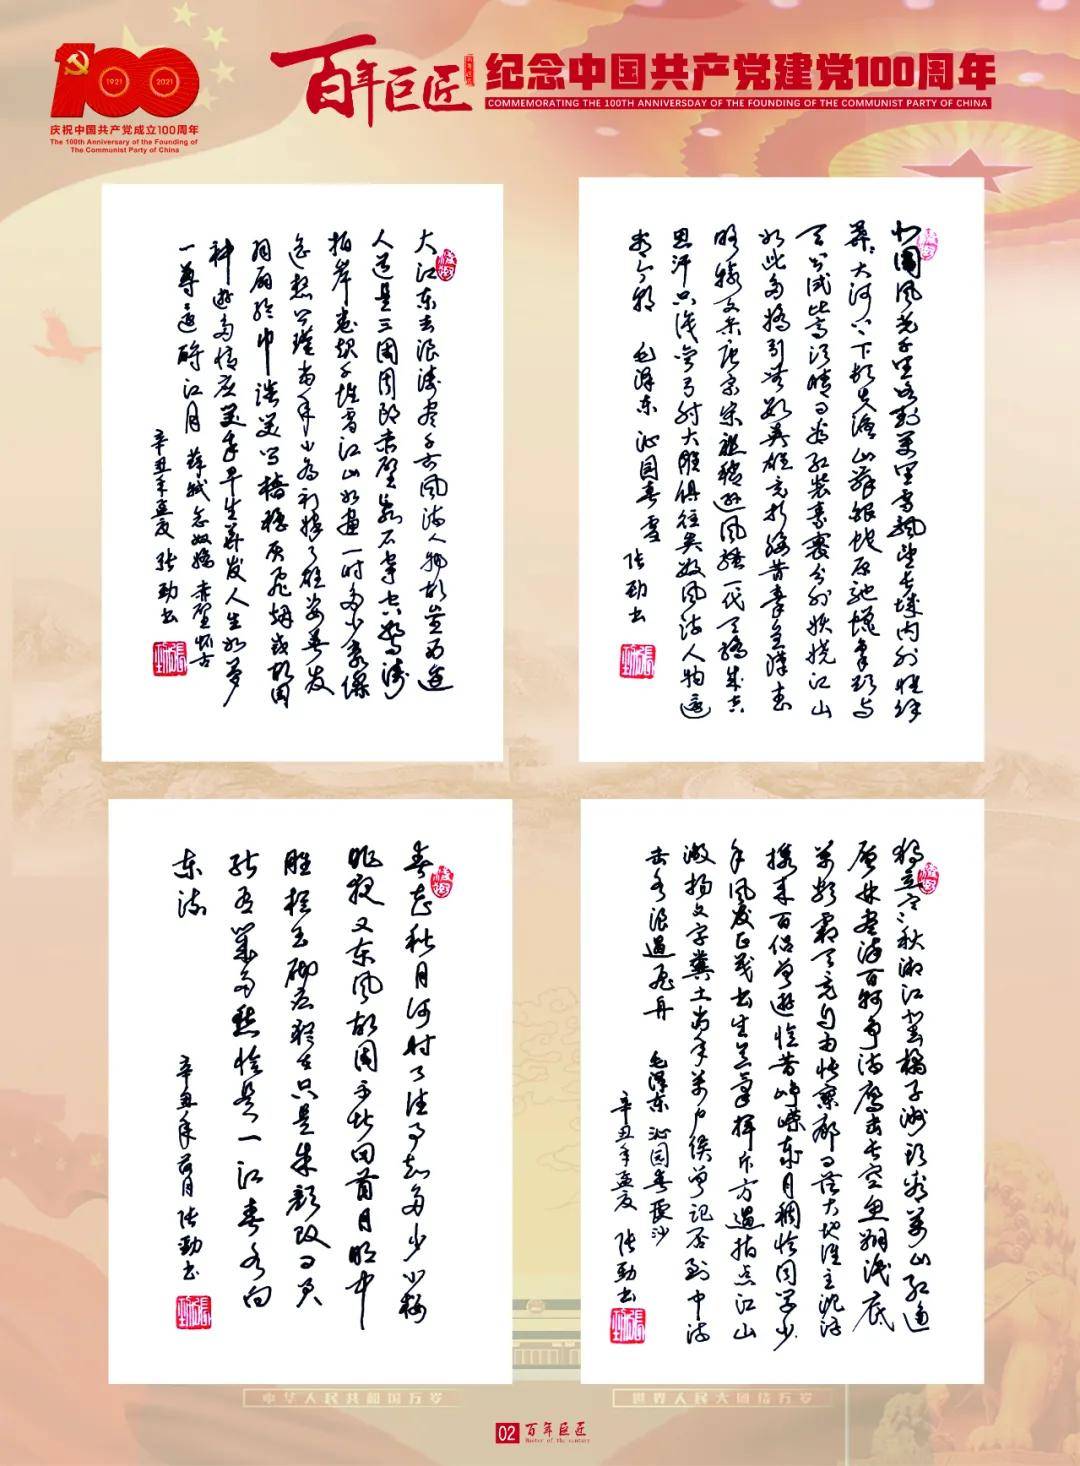 1921
2021
庆祝中国共产党成立100周年
The 100th Anniversary of the Founding of
The Communist Party of China
百年巨匠
纪念中国共产党建党100周年
COMMEMORATING THE 100TH ANNIVERSDAY OF THE FOUNDING OF THE COMMUNIST PARTY OF CHINA
大江东去浪涛尽千古风流人物故垒西边
人道是三国周郎赤壁乱石穿空惊涛
拍岸卷起千堆雪江山如画一时多少豪杰
遥想公瑾当年小乔初嫁了雄姿英发
羽扇纶巾谈笑间樯橹灰飞烟灭故国
神游多情应笑我早生华发人生如梦
一尊还酹江月 苏轼念奴娇 赤壁怀古
辛丑年孟夏 张劲书
北国风光千里冰封万里雪飘望长城内外惟余
莽莽大河上下顿失滔滔山舞银蛇原驰蜡象欲与
天公试比高须晴日看红装素裹分外妖娆江山
如此多娇引无数英雄竞折腰昔秦皇汉武
略输文采唐宗宋祖稍逊风骚一代天骄成吉
思汗只识弯弓射大雕俱往矣数风流人物还
看今朝 毛泽东 沁园春 雪 张劲书
春花秋月何时了往事知多少小楼
昨夜又东风故国不堪回首月明中
雕栏玉砌应犹在只是朱颜改问君
能有几多愁恰是一江春水向
东流
辛丑年荷月 张劲书
独立寒秋湘江北去橘子洲头看万山红遍
层林尽染百舸争流鹰击长空鱼翔浅底
万类霜天竞自由怅寥廓问苍茫大地谁主沉浮
携来百侣曾游忆昔峥嵘岁月稠恰同学少
年风发正茂书生意气挥斥方遒指点江山
激扬文字粪土当年万户侯曾记否到中流
击水浪遏飞舟 毛泽东 沁园春 长沙
辛丑年孟夏 张劲书
中华人民共和国万岁
世界人民大团结万岁
02 百年巨匠
Master of the century